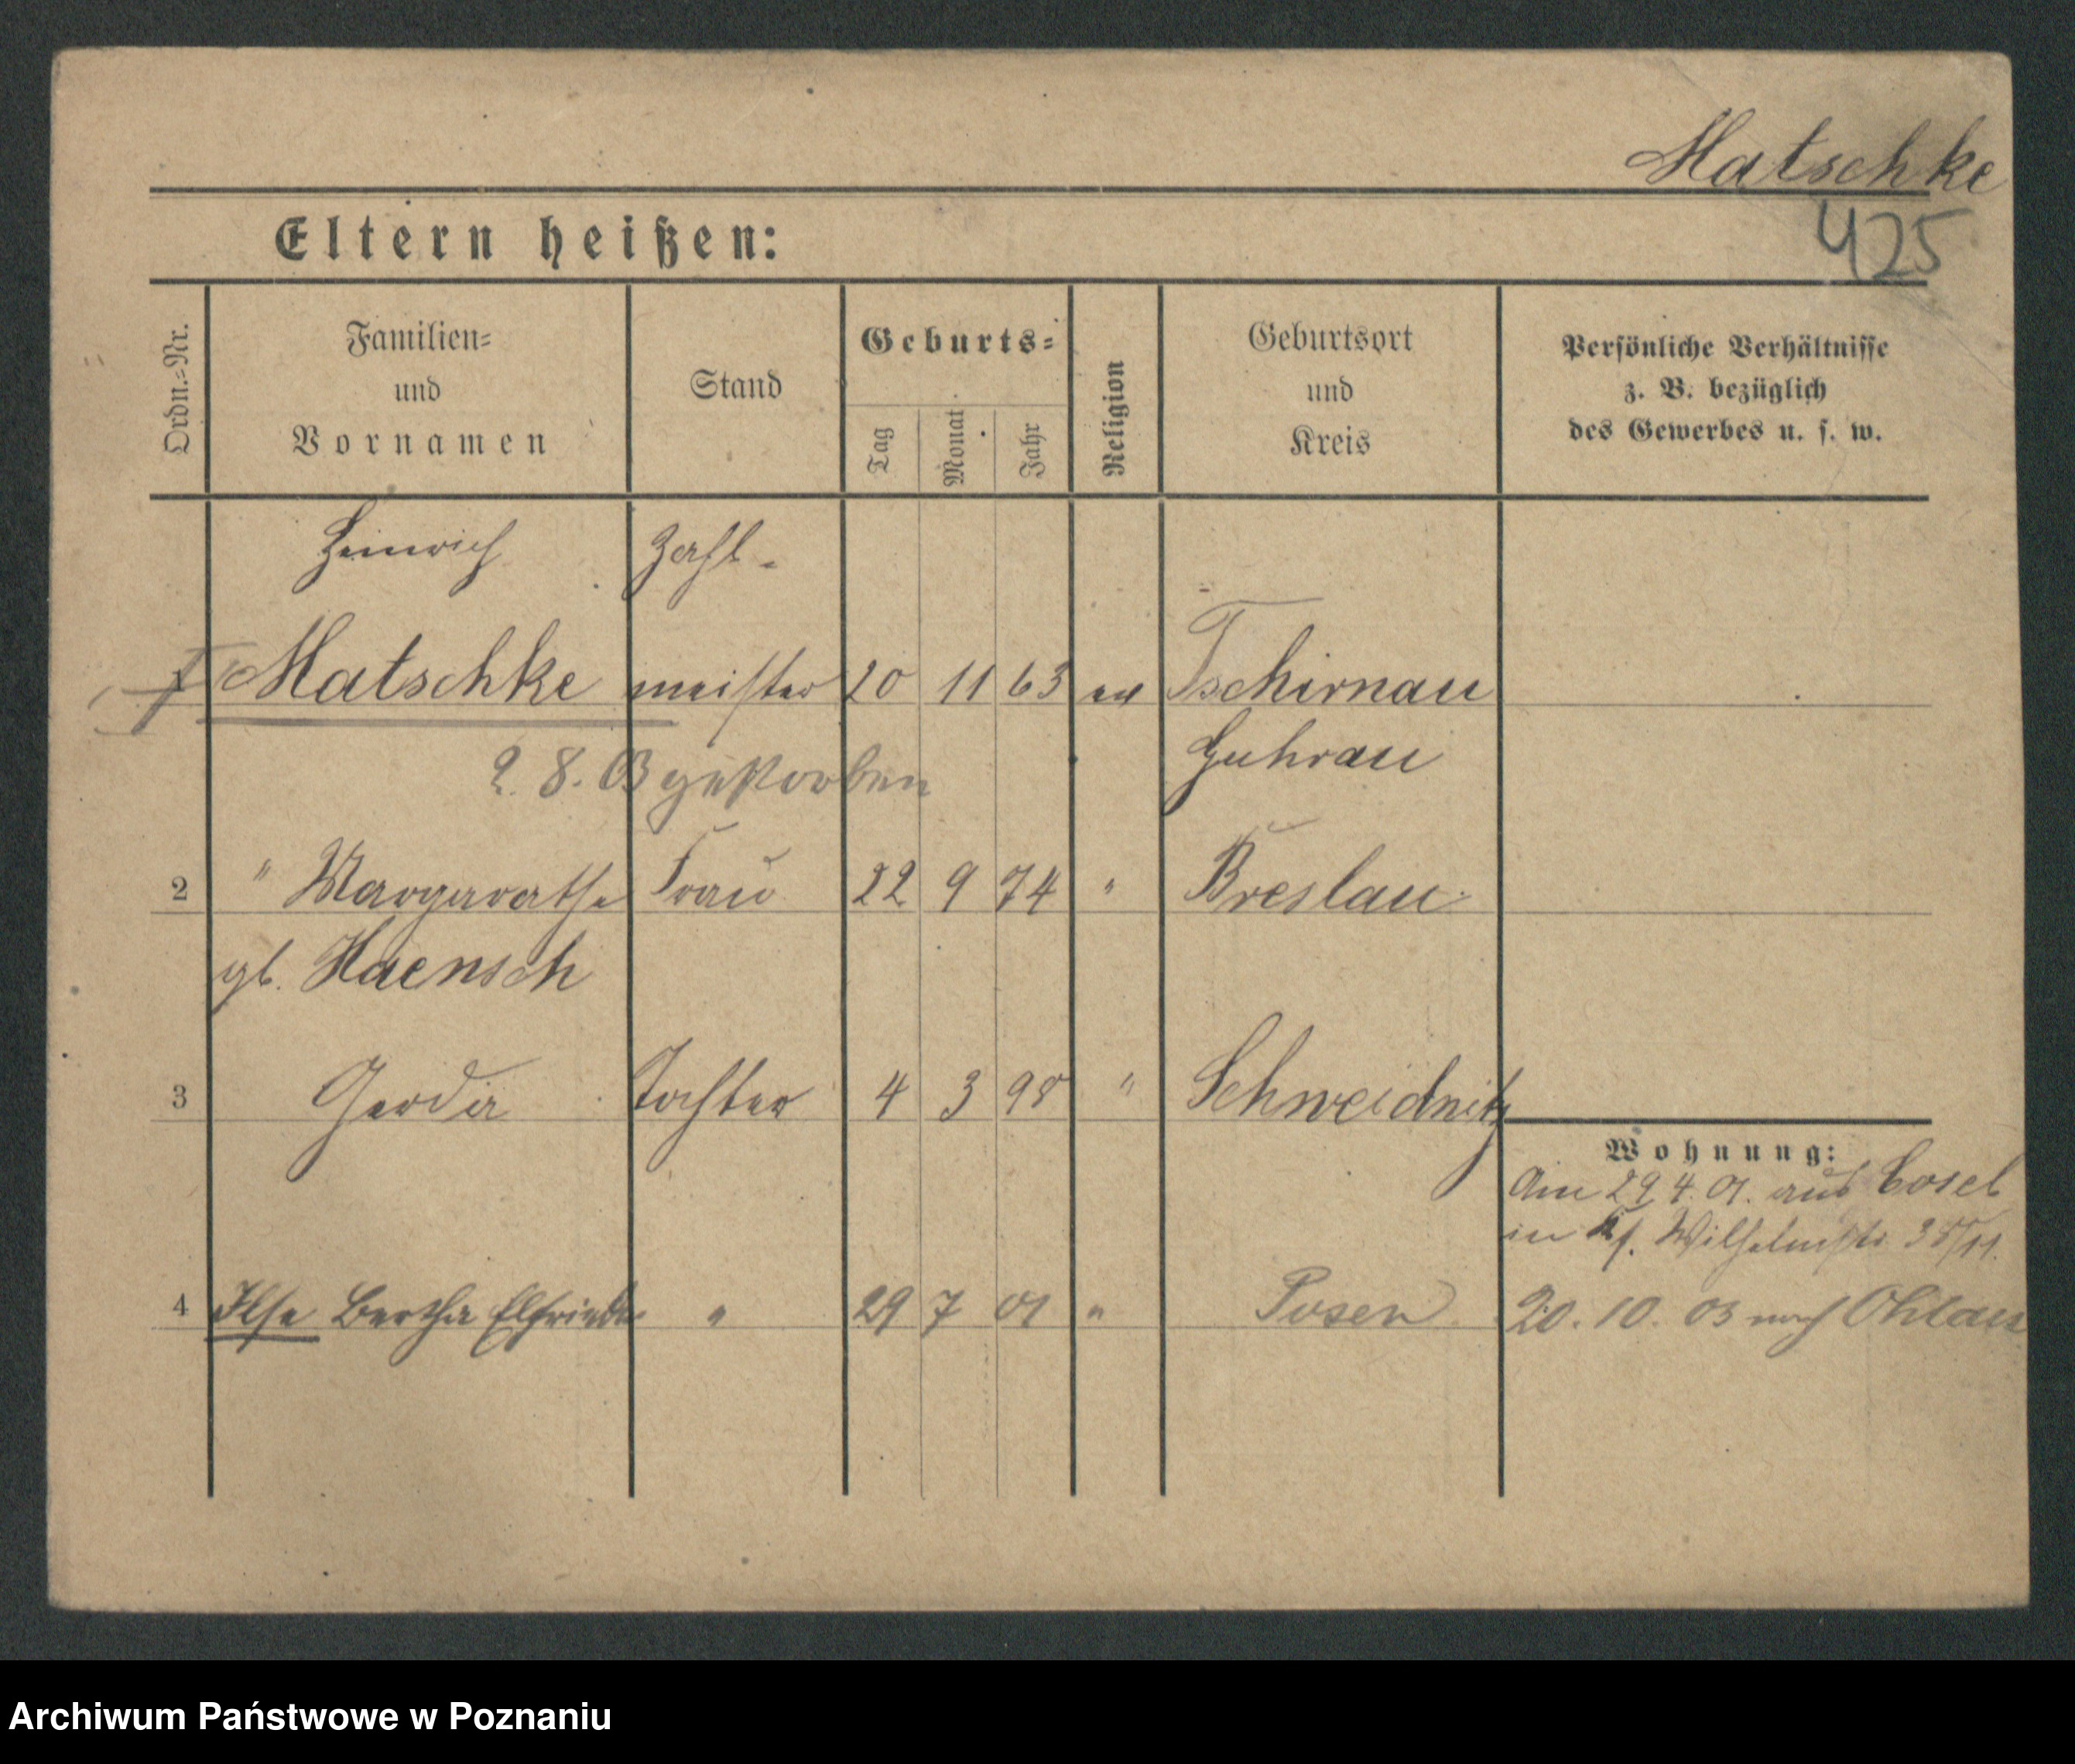 Matschke
425
Eltern heißen:
Ordn.-Nr.
Familien-
und
Vornamen
Stand
Geburts-
Tag
Monat
Jahr
Religion
Geburtsort
und
Kreis
Persönliche Verhältnisse
z. B. bezüglich
des Gewerbes u. s. w.
Heinrich Zahl-
Matschke meister 20 11 63 ev Tschirnau
Guhrau
2. 8. 03 gestorben
2 " Margarethe Frau 22 9 74 " Breslau
gb. Haensch
3 Gerda Tochter 4 3 98 " Schweidnitz
Wohnung:
Am 29 4. 01. aus Cosel
in Wilhelmstr 38/11.
4 Ilse Bertha Elfriede " 29 7 01 " Posen 20. 10. 03 nach Ohlau
Archiwum Państwowe w Poznaniu